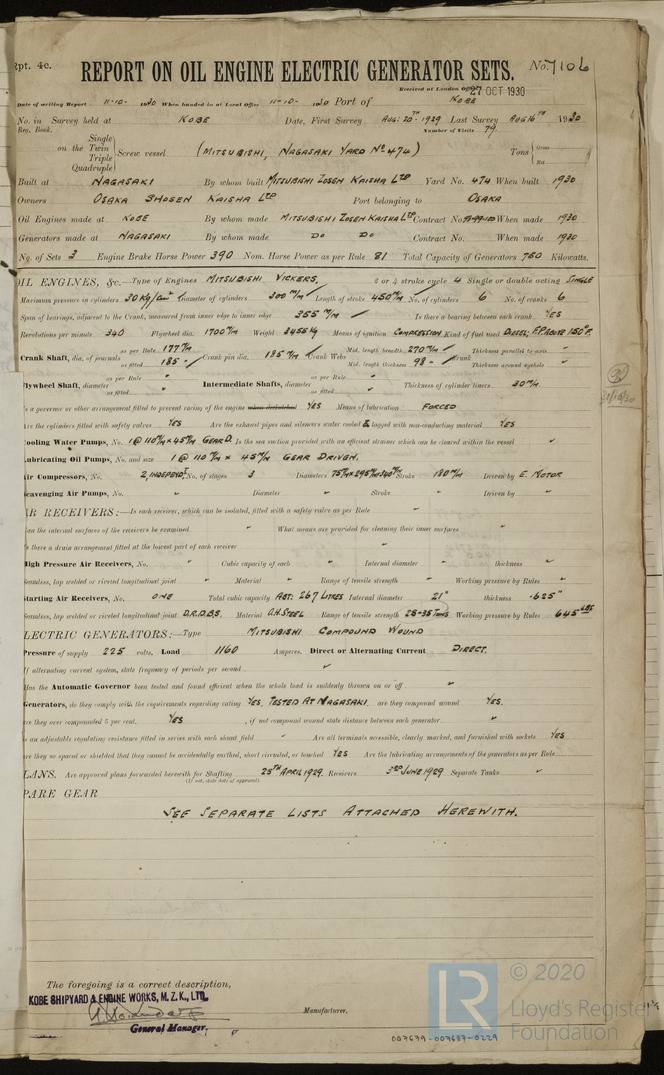 Rpt. 4c.
REPORT ON OIL ENGINE ELECTRIC GENERATOR SETS.
No. 7106
Received at London Office 27 OCT 1930
Date of writing Report 11-10- 1930 When handed in at Local Office 11-10- 1930 Port of KOBE
No. in Survey held at KOBE Date, First Survey AUG: 20TH - 1929 Last Survey AUG 16TH 1930
Reg. Book. Number of Visits 79
Single
on the Twin
Triple
Quadruple
Screw vessel (MITSUBISHI, NAGASAKI YARD No 474) Tons Gross
Net
Built at NAGASAKI By whom built MITSUBISHI ZOSEN KAISHA LTD Yard No. 474 When built 1930
Owners OSAKA SHOSEN KAISHA LTD Port belonging to OSAKA
Oil Engines made at KOBE By whom made MITSUBISHI ZOSEN KAISHA LTD Contract No. When made 1930
Generators made at NAGASAKI By whom made DO DO Contract No. When made 1930
No. of Sets 3 Engine Brake Horse Power 390 Nom. Horse Power as per Rule 81 Total Capacity of Generators 750 Kilowatts.
OIL ENGINES, &c.—Type of Engines MITSUBISHI VICKERS. 2 or 4 stroke cycle 4 Single or double acting SINGLE
Maximum pressure in cylinders 50 Kg/cm² Diameter of cylinders 300 m/m Length of stroke 450 m/m No. of cylinders 6 No. of cranks 6
Span of bearings, adjacent to the Crank, measured from inner edge to inner edge 355 m/m Is there a bearing between each crank YES
Revolutions per minute 340 Flywheel dia. 1700 m/m Weight 3455 KG Means of ignition COMPRESSION Kind of fuel used DIESEL; F.P. ABOVE 150°F.
Crank Shaft, dia. of journals as per Rule 177 m/m as fitted 185 - Crank pin dia. 185 m/m Crank Webs Mid. length breadth 270 m/m Mid. length thickness 98 - Thickness parallel to axis Thickness around eyehole
Flywheel Shaft, diameter as per Rule as fitted Intermediate Shafts, diameter as per Rule as fitted Thickness of cylinder liners 30 m/m
Is a governor or other arrangement fitted to prevent racing of the engine when declutched YES Means of lubrication FORCED
Are the cylinders fitted with safety valves YES Are the exhaust pipes and silencers water cooled & lagged with non-conducting material YES
Cooling Water Pumps, No. 1 @ 110 m/m x 45 m/m GEAR D. Is the sea suction provided with an efficient strainer which can be cleared within the vessel
Lubricating Oil Pumps, No. and size 1 @ 110 m/m x 45 m/m GEAR DRIVEN.
Air Compressors, No. 2, INDEPENDT. No. of stages 3 Diameters Stroke 180 m/m Driven by E. MOTOR
Scavenging Air Pumps, No. Diameter Stroke Driven by
AIR RECEIVERS:—Is each receiver, which can be isolated, fitted with a safety valve as per Rule
Can the internal surfaces of the receivers be examined What means are provided for cleaning their inner surfaces
Is there a drain arrangement fitted at the lowest part of each receiver
High Pressure Air Receivers, No. Cubic capacity of each Internal diameter thickness
Seamless, lap welded or riveted longitudinal joint Material Range of tensile strength Working pressure by Rules
Starting Air Receivers, No. ONE Total cubic capacity ACT: 267 LITRES Internal diameter 21" thickness .625"
Seamless, lap welded or riveted longitudinal joint D.R.D.B.S. Material O.H. STEEL Range of tensile strength 28-35 TONS Working pressure by Rules 645 LBS
ELECTRIC GENERATORS:—Type MITSUBISHI COMPOUND WOUND
Pressure of supply 225 volts. Load 1160 Amperes. Direct or Alternating Current DIRECT.
If alternating current system, state frequency of periods per second
Has the Automatic Governor been tested and found efficient when the whole load is suddenly thrown on or off
Generators, do they comply with the requirements regarding rating YES, TESTED AT NAGASAKI. are they compound wound YES.
are they over compounded 5 per cent. YES , if not compound wound state distance between each generator
Is an adjustable regulating resistance fitted in series with each shunt field Are all terminals accessible, clearly marked, and furnished with sockets YES
Are they so spaced or shielded that they cannot be accidentally earthed, short circuited, or touched YES Are the lubricating arrangements of the generators as per Rule
PLANS. Are approved plans forwarded herewith for Shafting 25TH APRIL 1929. Receivers 3RD JUNE 1929 Separate Tanks
(If not, state date of approval)
SPARE GEAR
SEE SEPARATE LISTS ATTACHED HEREWITH.
The foregoing is a correct description,
KOBE SHIPYARD & ENGINE WORKS, M. Z. K., LTD.
Manufacturer.
General Manager.
LR © 2020
Lloyd's Register
Foundation
007679-007687-0229